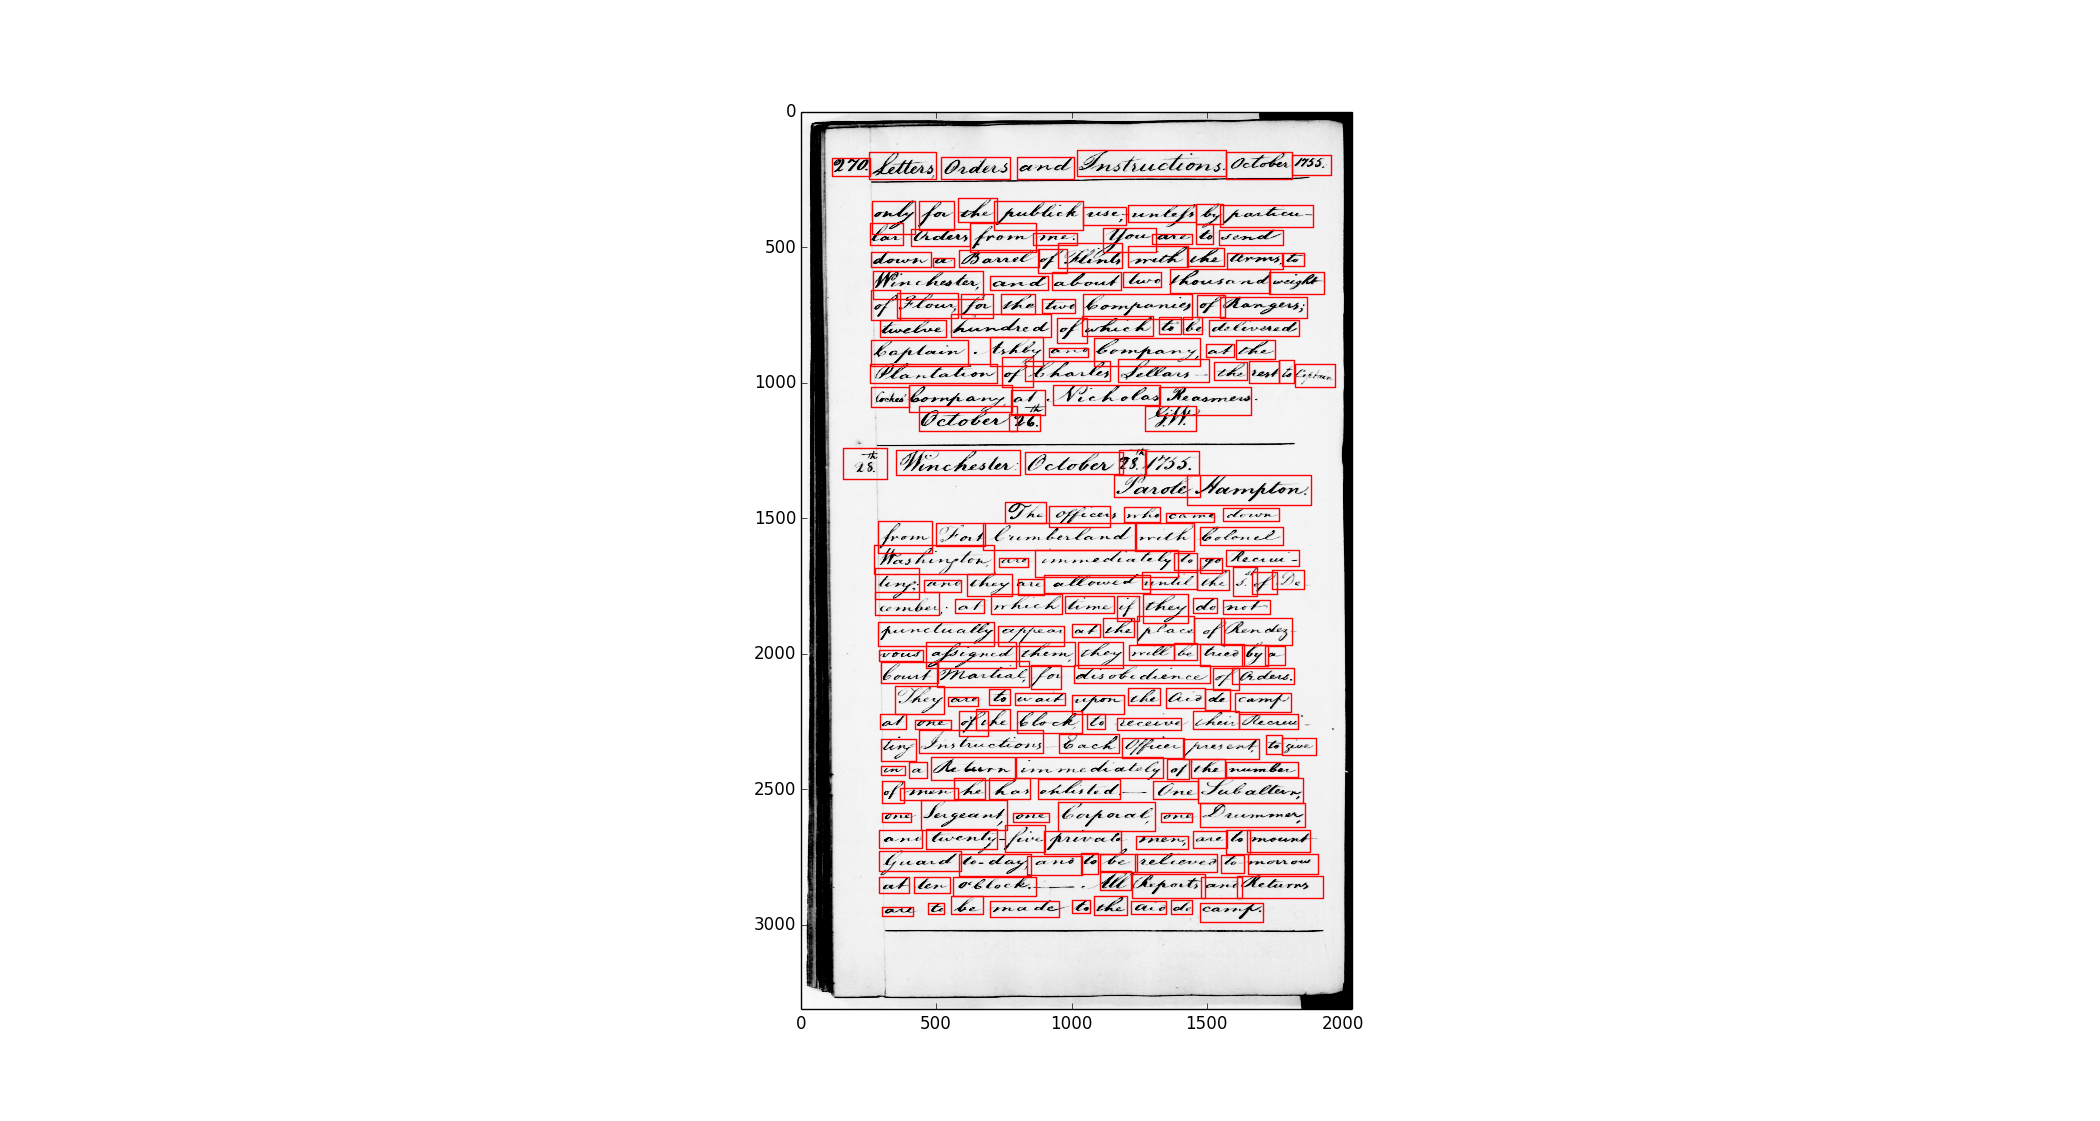 0
500
1000
1500
2000
2500
3000
0 500 1000 1500 2000
270. Letters, Orders and Instructions. October 1755.
only for the publick use, unless by particu-
lar Orders from me. You are to send
down a Barrel of Flints with the Arms, to
Winchester, and about two thousand weight
of Flour, for the two Companies of Rangers;
twelve hundred of which to be delivered
Captain. Ashby and Company, at the
Plantation of Charles Sellars - the rest to Captain
Cockes' Company, at. Nicholas Reasmers.
October 26.th G.W.
28.th Winchester: October 28.th 1755.
Parole Hampton.
The Officers who came down
from Fort Cumberland with Colonel
Washington, are immediately to go Recrui-
ting; and they are allowed until the 1.st of De
cember; at which time if they do not
punctually appear at the place of Rendez-
vous assigned them, they will be tried by a
Court Martial, for disobedience of Orders.
They are to wait upon the Aid de camp
at one of the Clock, to receive their Recrui-
ting Instructions - Each Officer present, to give
in a Return immediately of the number
of men he has enlisted — One Subaltern,
one Sergeant, one Corporal, one Drummer,
and twenty-five private men, are to mount
Guard to-day, and to be relieved to-morrow
at ten o'Clock. — . All Reports and Returns
are to be made to the Aid de camp.